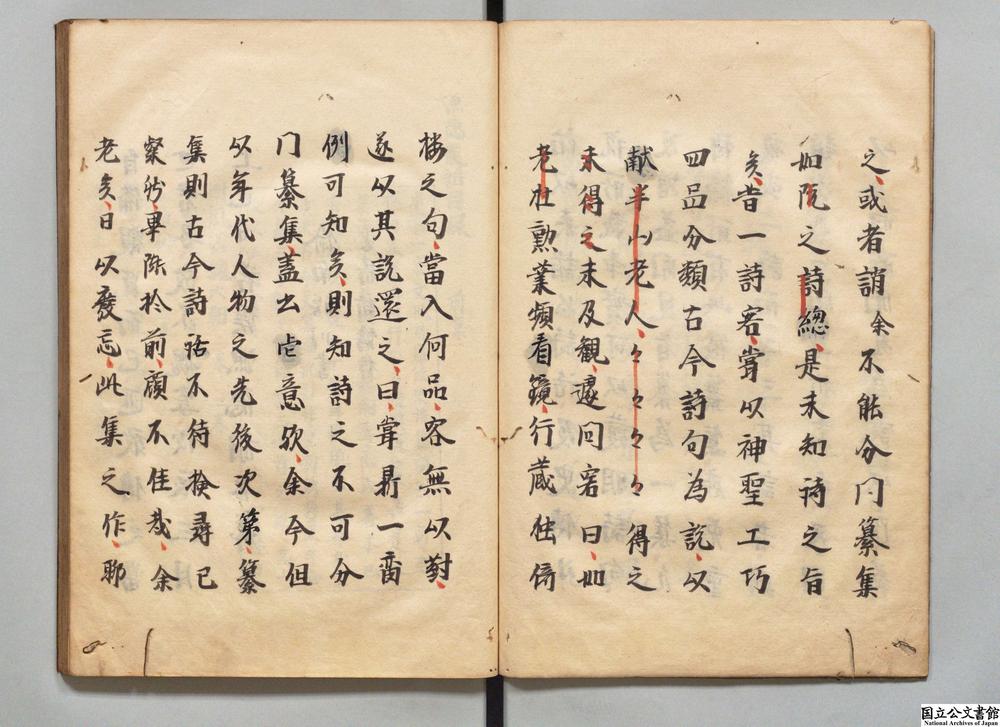 之或者誚余不能分門纂集
如阮之詩總是未知詩之旨
矣昔一詩客嘗以神聖工巧
四品分類古今詩句為説以
献半山老人々々々々得之
未得之未及観遽問客曰如
老杜勲業頻看鏡行蔵独倚
楼之句當入何品客無以對
遂以其説還之曰嘗鼎一臠
例可知矣則知詩之不可分
门纂集盖出此意欤余今但
以年代人物之先後次第纂
集則古今詩話不待檢尋已
粲然畢陳於前顧不佳哉余
老矣日以廢忘此集之作聊
国立公文書館
National Archives of Japan